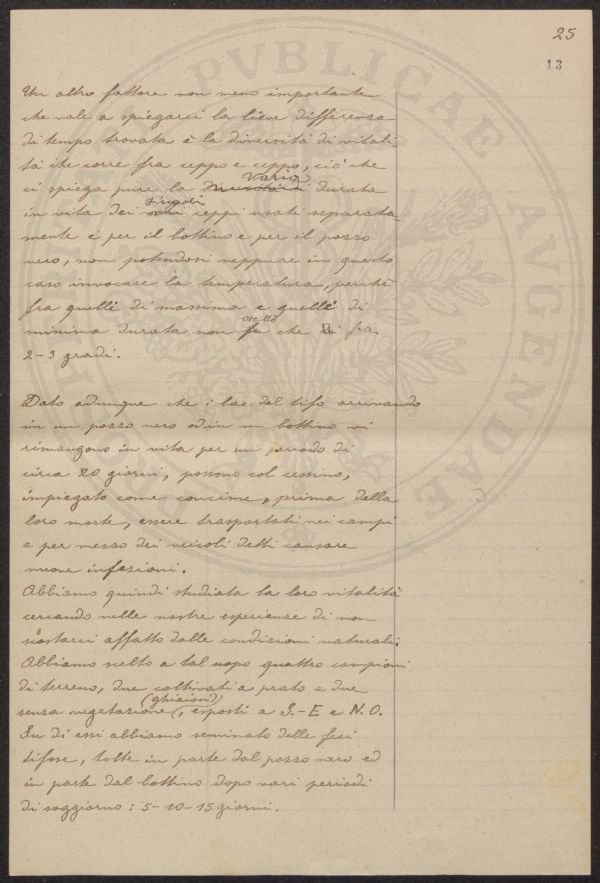 25
13
Un altro fattore non meno importante
che vale a spiegarci la lieve differenza
di tempo trovata è la diversità di vitali
tà che corre fra ceppo e ceppo, ciò che
ci spiega pure la varia durata
in vita dei singoli ceppi usati separata-
mente e per il bottino e per il pozzo
nero, non potendosi neppure in questo
caso invocare la temperatura, perchè
fra quelli di massima e quelli di
minima durata non che di fra
2-3 gradi.
Dato adunque che i bac. del tifo arrivando
in un pozzo nero od in un bottino vi
rimangono in vita per un periodo di
circa 20 giorni, possono col cessino,
impiegato come concime, prima della
loro morte, essere trasportati nei campi
e per mezzo dei veicoli detti causare
nuove infezioni.
Abbiamo quindi studiata la loro vitalità
cercando nelle nostre esperienze di non
scostarci affatto dalle condizioni naturali.
Abbiamo scelto a tal uopo quattro campioni
di terreno, due coltivati a prato e due
senza vegetazione (ghiaiosi), esposti a S.-E e N.O.
Su di essi abbiamo seminato delle feci
tifose, tolte in parte dal pozzo nero ed
in parte dal bottino dopo vari periodi
di soggiorno: 5-10-15 giorni.
PVBLICAE AVGENDAE